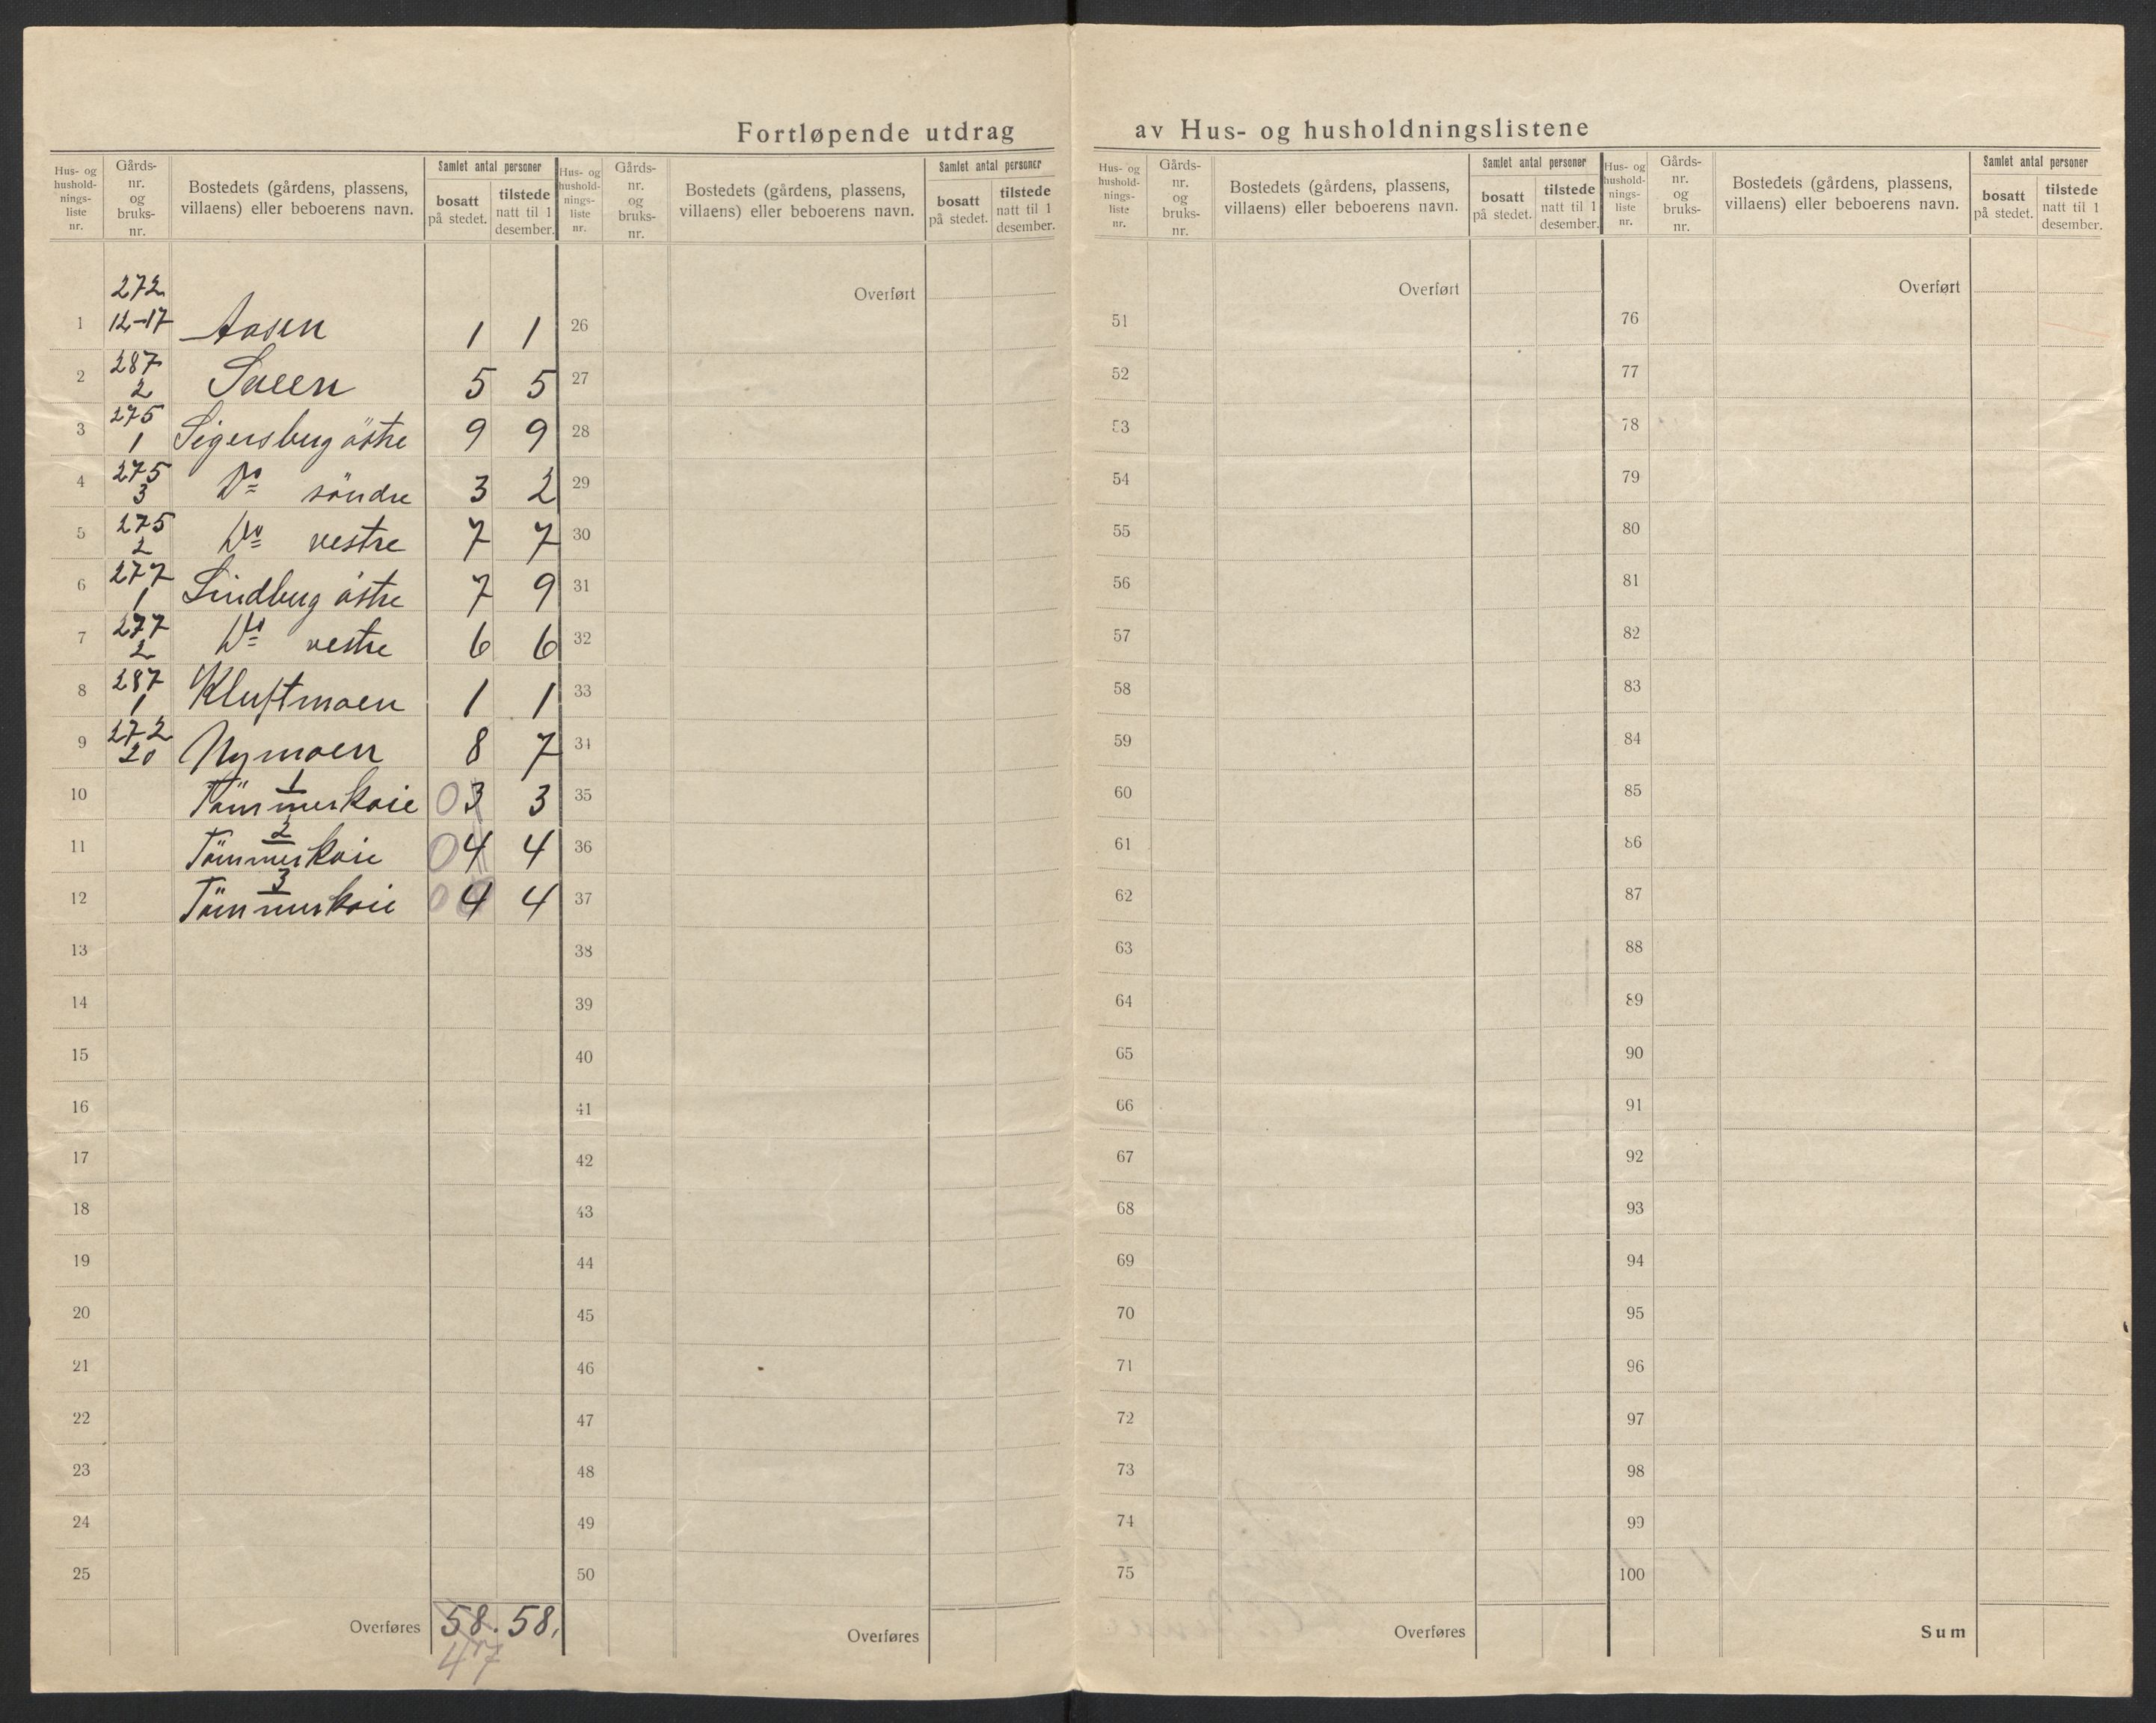 Fortløpende utdrag av Hus- og husholdningslistene
Hus- og hushold- nings- liste nr. | Gårds- nr. og bruks- nr. | Bostedets (gårdens, plassens, villaens) eller beboerens navn. | Samlet antal personer | bosatt på stedet. | tilstede natt til 1 desember.
Hus- og hushold- nings- liste nr. | Gårds- nr. og bruks- nr. | Bostedets (gårdens, plassens, villaens) eller beboerens navn. | Samlet antal personer | bosatt på stedet. | tilstede natt til 1 desember.
Hus- og hushold- nings- liste nr. | Gårds- nr. og bruks- nr. | Bostedets (gårdens, plassens, villaens) eller beboerens navn. | Samlet antal personer | bosatt på stedet. | tilstede natt til 1 desember.
Hus- og hushold- nings- liste nr. | Gårds- nr. og bruks- nr. | Bostedets (gårdens, plassens, villaens) eller beboerens navn. | Samlet antal personer | bosatt på stedet. | tilstede natt til 1 desember.
1 272 12-17 Aasen 1 1
2 287 2 Sveen 5 5
3 275 1 Sigersberg östre 9 9
4 275 3 Do söndre 3 2
5 275 2 Do vestre 7 7
6 277 1 Lindberg östre 7 9
7 277 2 Do vestre 6 6
8 287 1 Kluftmoen 1 1
9 272 20 Nymoen 8 7
10 Tömmerkoie 1 0 3 3
11 Tömmerkoie 2 0 4 4
12 Tömmerkoie 3 0 4 4
13
14
15
16
17
18
19
20
21
22
23
24
25
Overføres 58. 58.
47
Overført
26
27
28
29
30
31
32
33
34
35
36
37
38
39
40
41
42
43
44
45
46
47
48
49
50
Overføres
Overført
51
52
53
54
55
56
57
58
59
60
61
62
63
64
65
66
67
68
69
70
71
72
73
74
75
Overføres
Overført
76
77
78
79
80
81
82
83
84
85
86
87
88
89
90
91
92
93
94
95
96
97
98
99
100
Sum